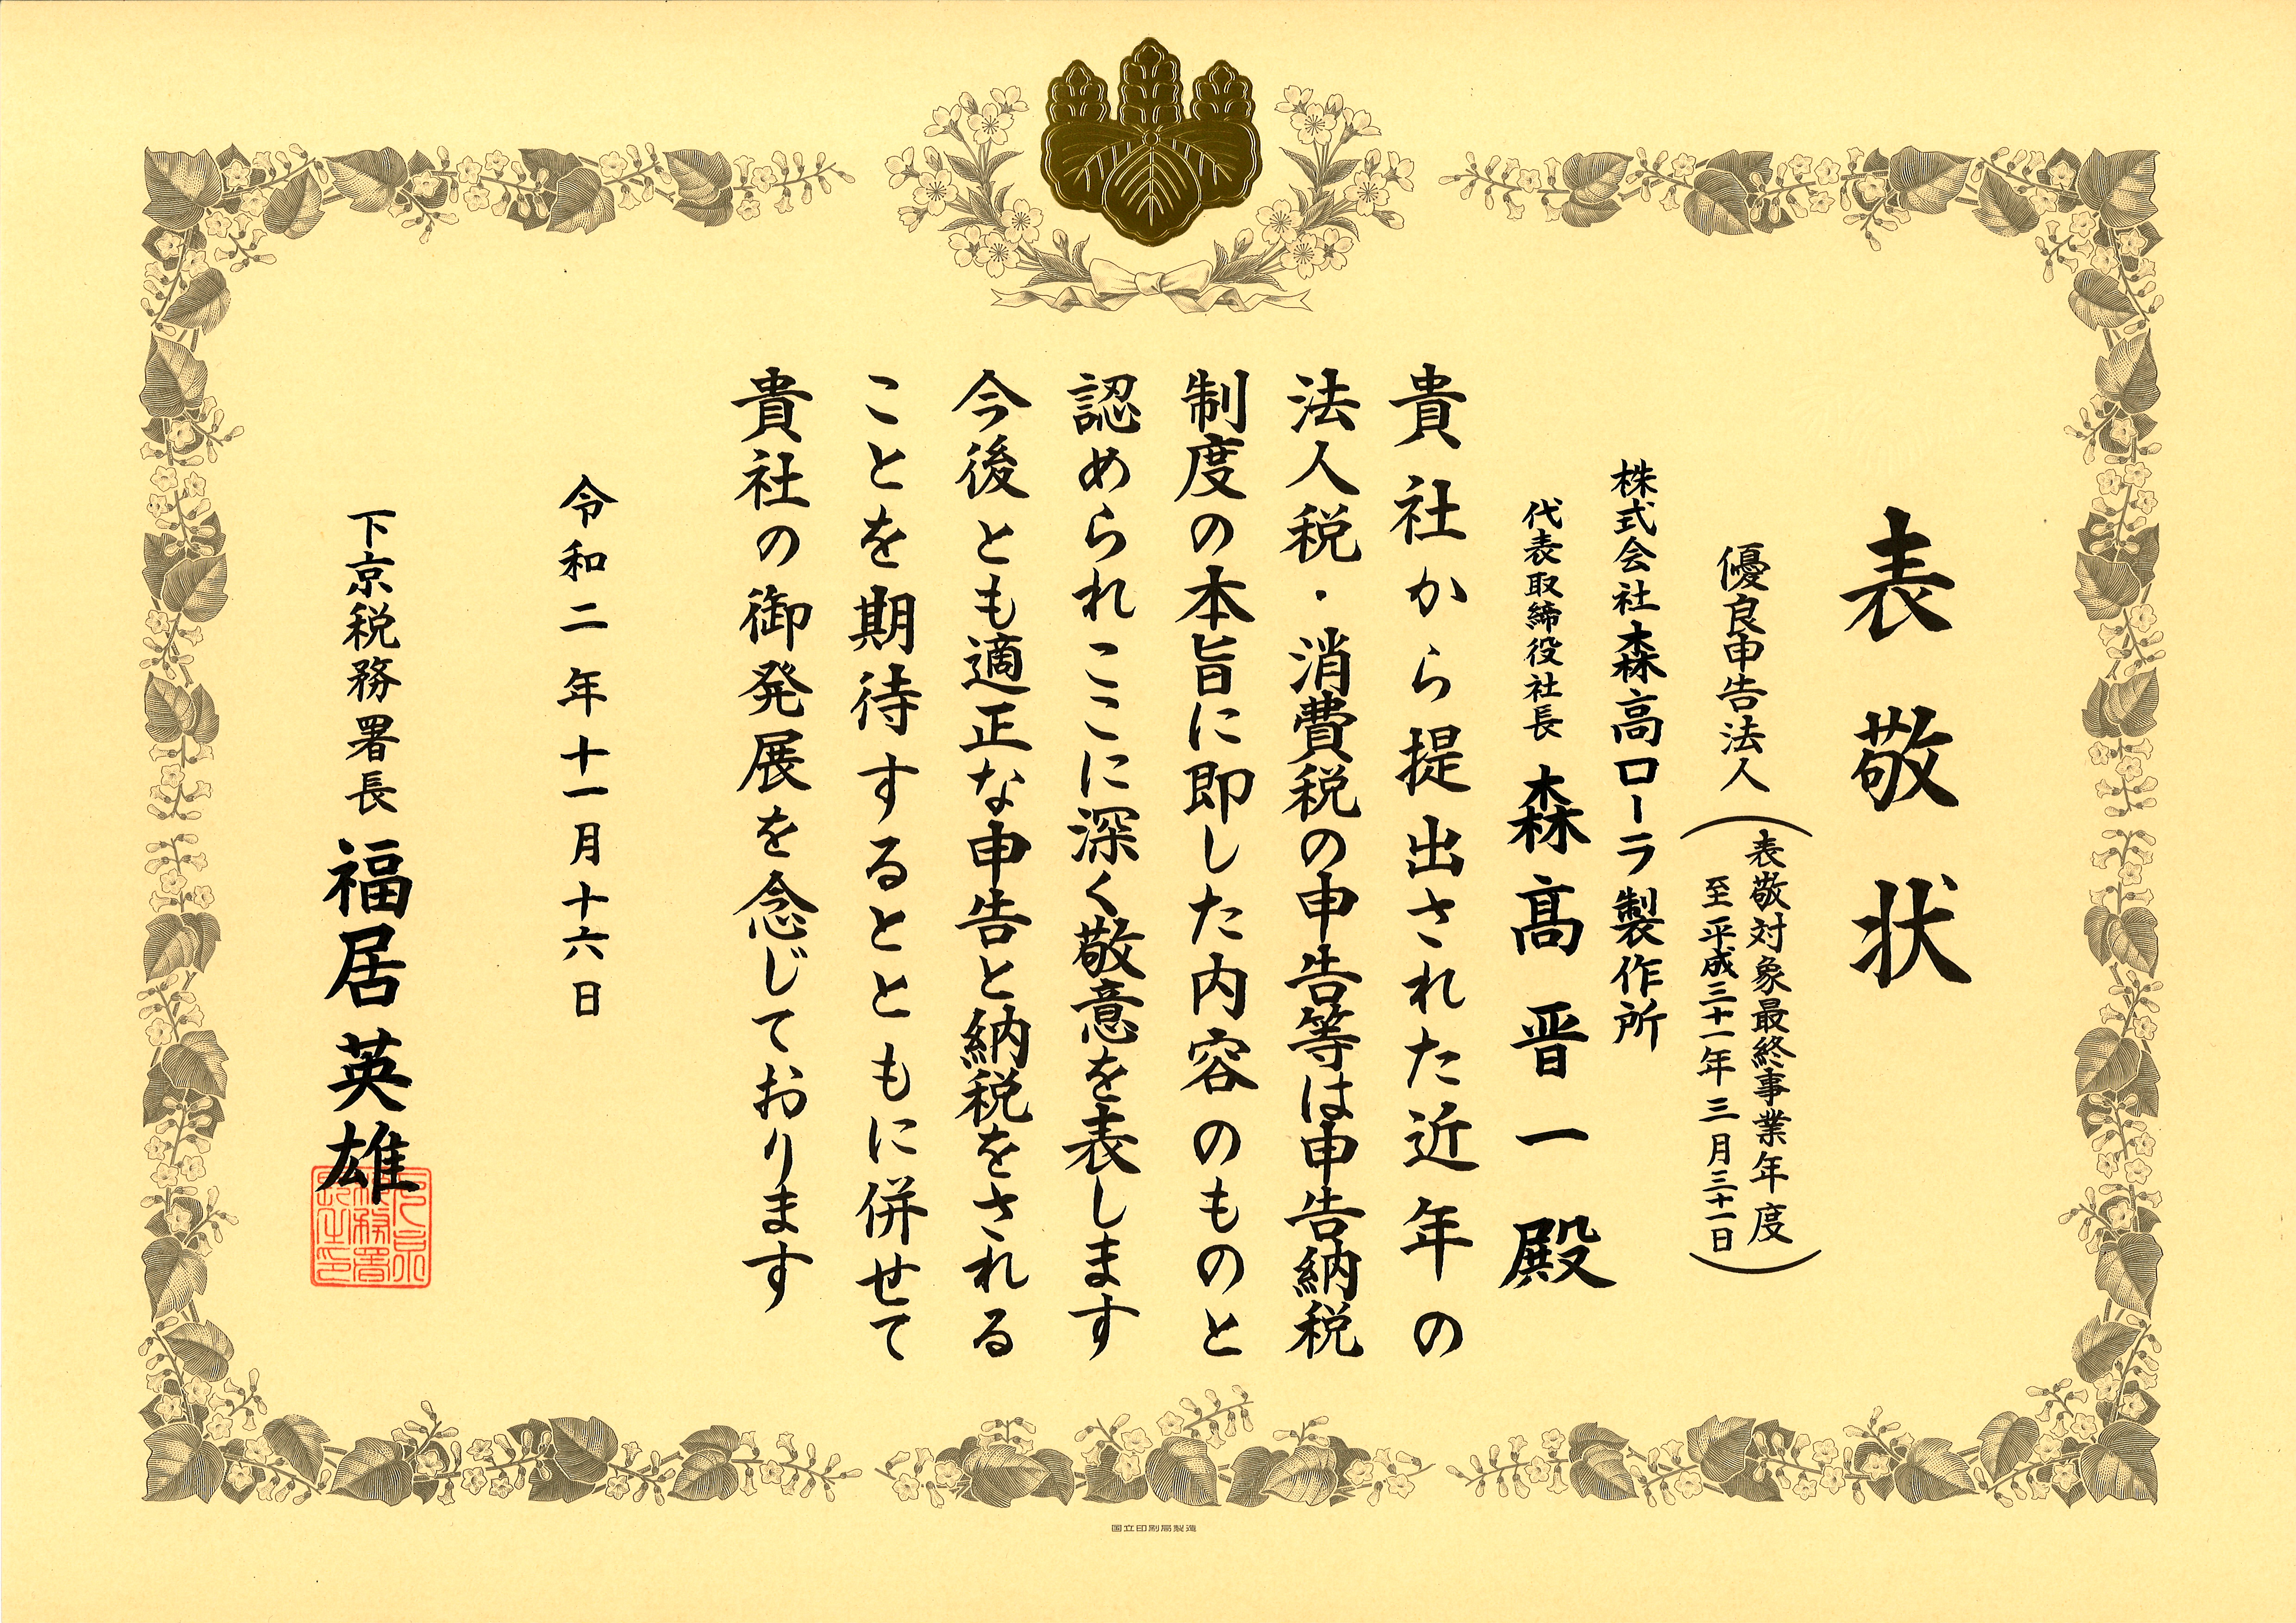 表敬状
優良申告法人
（表敬対象最終事業年度
至平成三十一年三月三十一日）
株式会社森高ローラ製作所
代表取締役社長 森髙晋一殿
貴社から提出された近年の
法人税・消費税の申告等は申告納税
制度の本旨に即した内容のものと
認められここに深く敬意を表します
今後とも適正な申告と納税をされる
ことを期待するとともに併せて
貴社の御発展を念じております
令和二年十一月十六日
下京税務署長 福居英雄
下京税務署長之印
国立印刷局製造